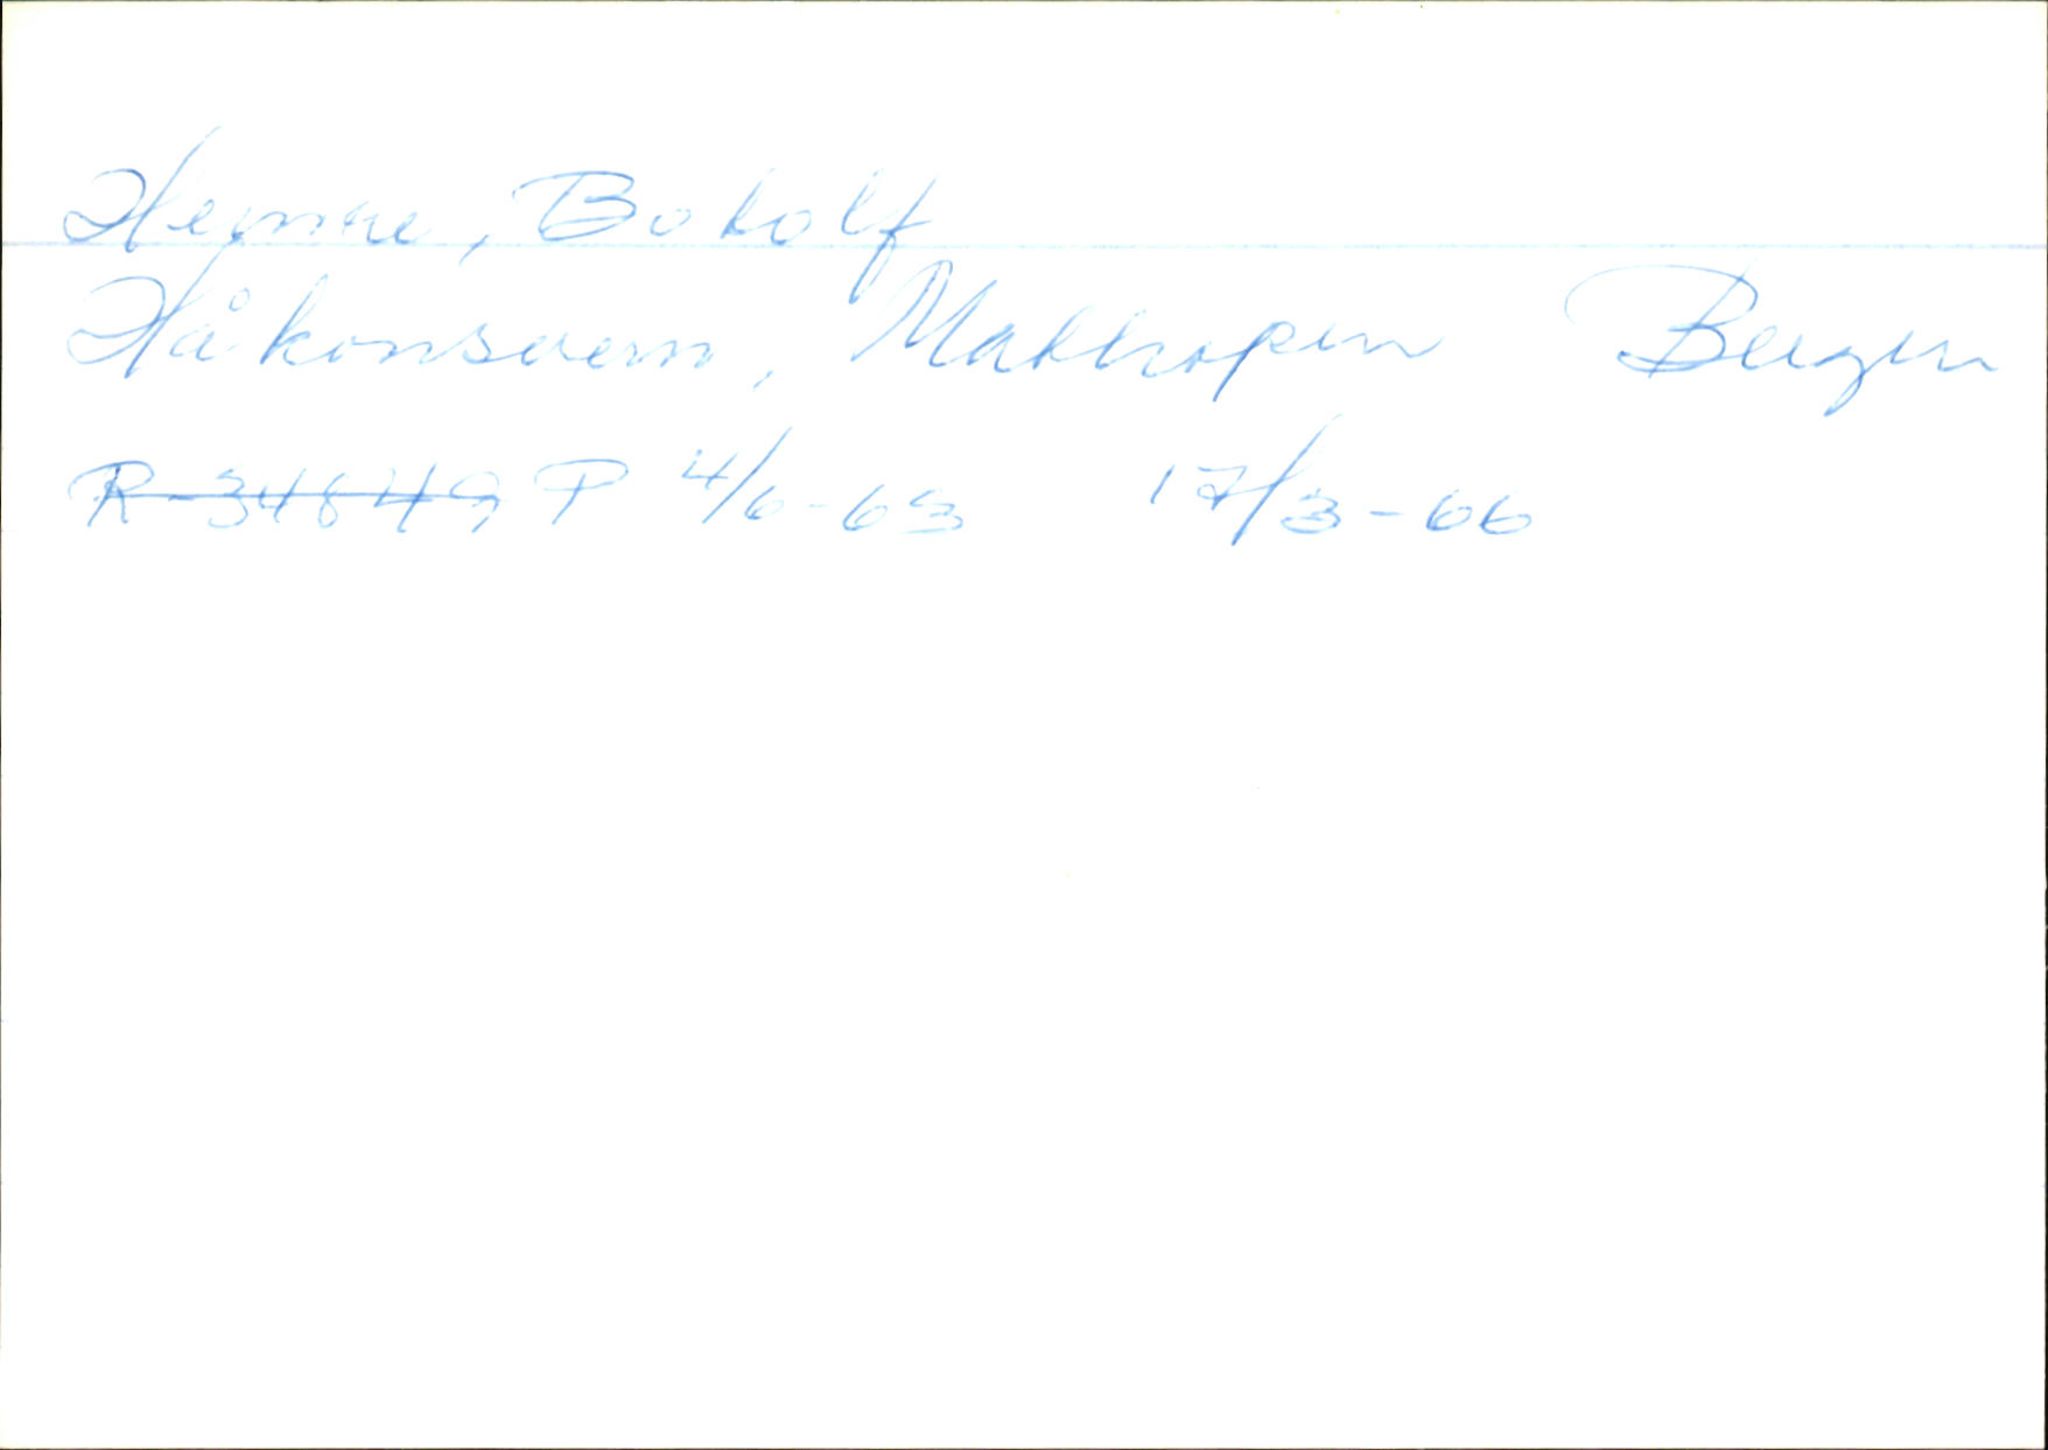 Heimre, Botolf
Håkonsvern, Mathopen Bergen
R-34849 P 4/6-63 17/3-66